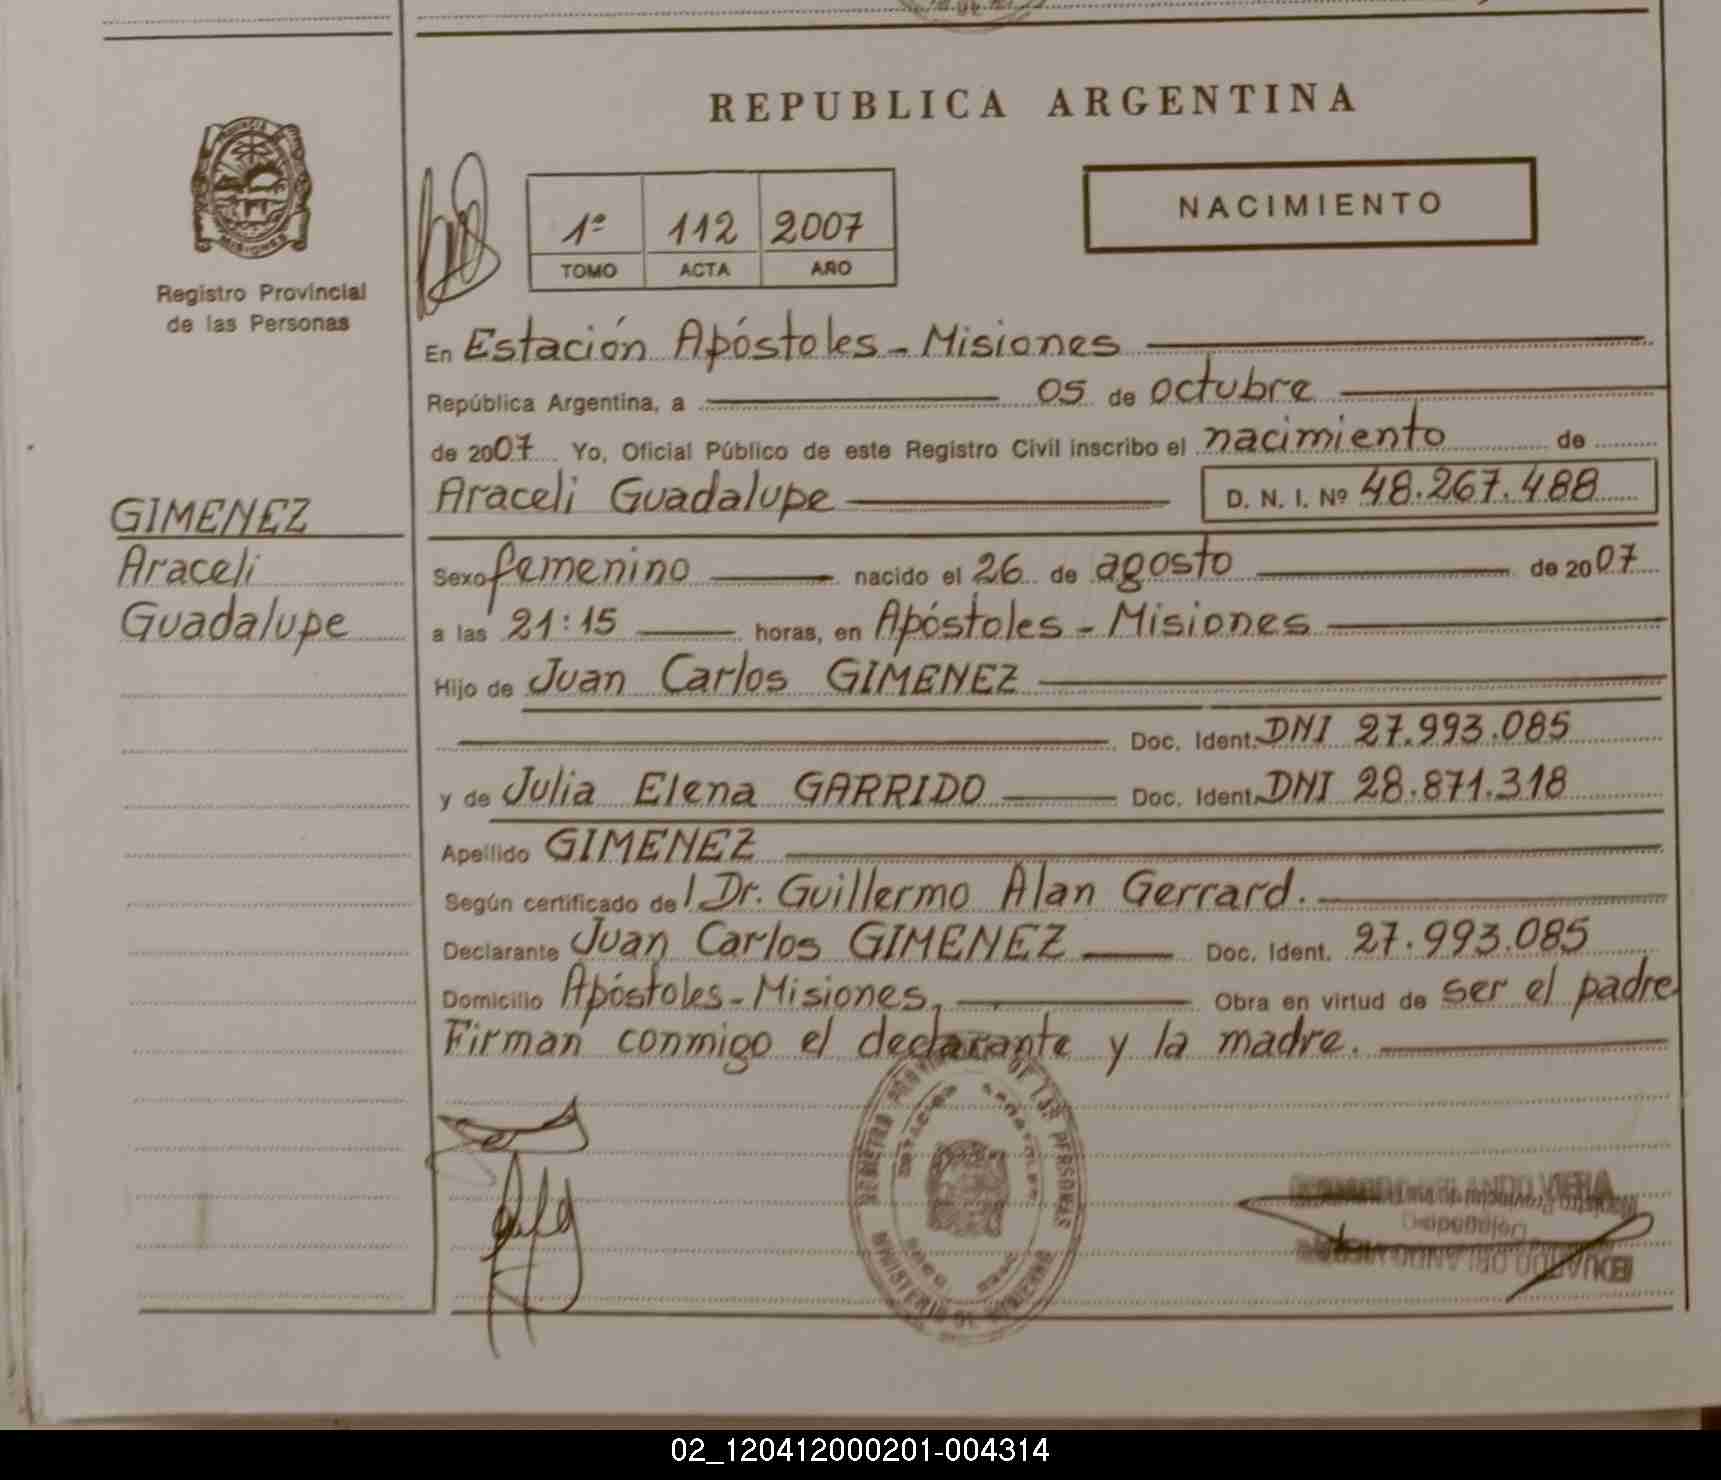 REPUBLICA ARGENTINA
MISIONES
Registro Provincial
de las Personas
1º 112 2007
TOMO ACTA AÑO
NACIMIENTO
En Estación Apóstoles - Misiones
República Argentina, a 05 de octubre
de 2007 Yo, Oficial Público de este Registro Civil inscribo el nacimiento de
Araceli Guadalupe D. N. I. Nº 48.267.488
GIMENEZ
Araceli
Guadalupe
Sexo femenino nacido el 26 de agosto de 2007
a las 21:15 horas, en Apóstoles - Misiones
Hijo de Juan Carlos GIMENEZ
Doc. Ident. DNI 27.993.085
y de Julia Elena GARRIDO Doc. Ident. DNI 28.871.318
Apellido GIMENEZ
Según certificado del Dr. Guillermo Alan Gerrard.
Declarante Juan Carlos GIMENEZ Doc. Ident. 27.993.085
Domicilio Apóstoles - Misiones, Obra en virtud de ser el padre
Firman conmigo el declarante y la madre.
DE LAS PERSONAS
02_120412000201-004314